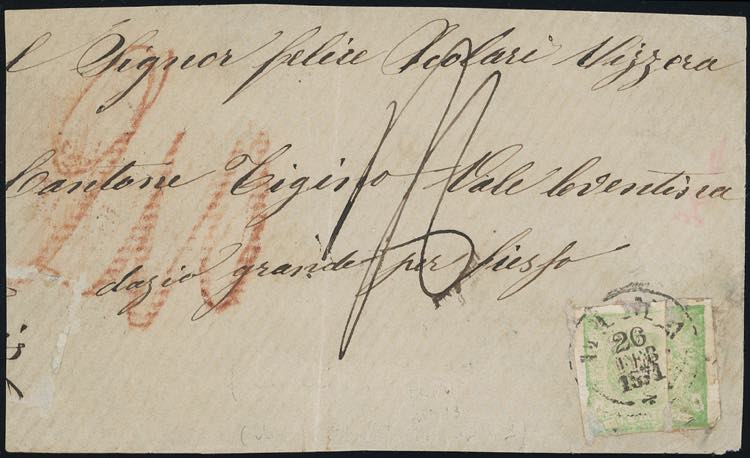 l Signor felice Scolari Svizzera
Cantone Tigino Vale leventina
dazio grande per fiesso
LIMA
26
DEC
1871